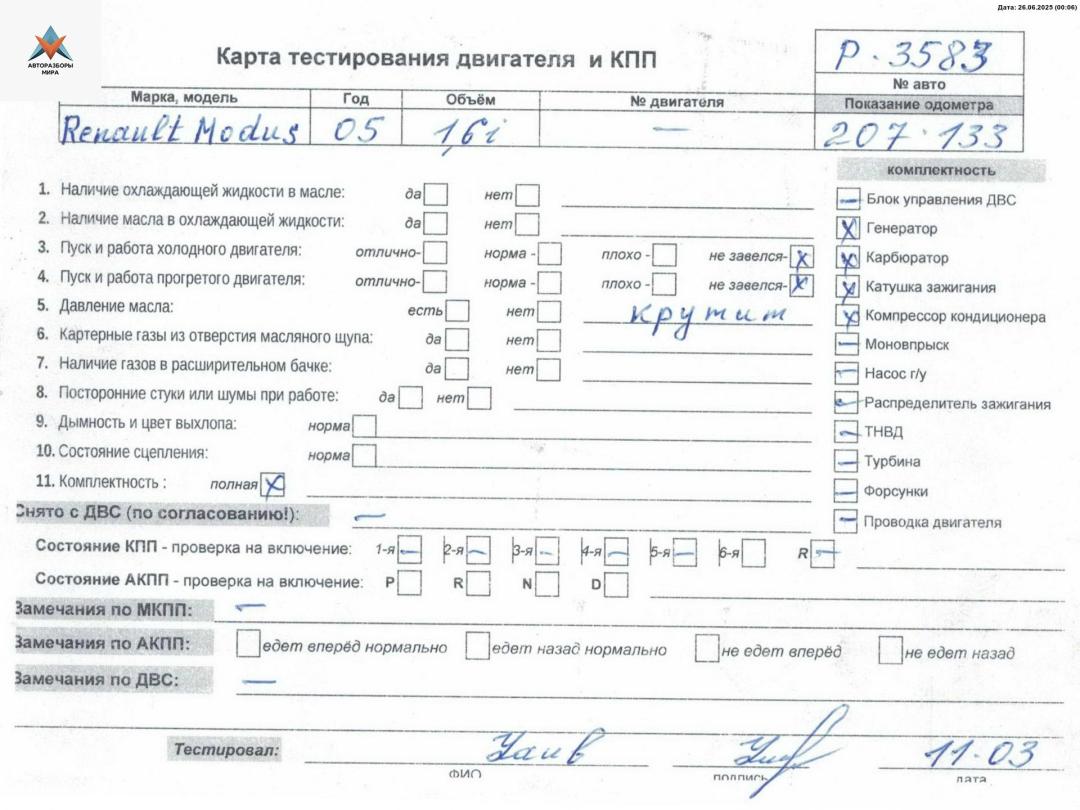 Дата: 26.06.2025 (00:06)
АВТОРАЗБОРЫ
МИРА
Карта тестирования двигателя и КПП
Р.3583
№ авто
Марка, модель Год Объём № двигателя Показание одометра
Renault Modus 05 1,6i — 207.133
комплектность
1. Наличие охлаждающей жидкости в масле: да нет
Блок управления ДВС
2. Наличие масла в охлаждающей жидкости: да нет
Генератор
3. Пуск и работа холодного двигателя: отлично- норма - плохо - не завелся- x
Карбюратор
4. Пуск и работа прогретого двигателя: отлично- норма - плохо - не завелся- x
Катушка зажигания
5. Давление масла: есть нет крутит
Компрессор кондиционера
6. Картерные газы из отверстия масляного щупа: да нет
Моновпрыск
7. Наличие газов в расширительном бачке: да нет
Насос г/у
8. Посторонние стуки или шумы при работе: да нет
Распределитель зажигания
9. Дымность и цвет выхлопа: норма
ТНВД
10. Состояние сцепления: норма
Турбина
11. Комплектность : полная x
Форсунки
Снято с ДВС (по согласованию!): —
Проводка двигателя
Состояние КПП - проверка на включение: 1-я — 2-я — 3-я — 4-я — 5-я — 6-я R —
Состояние АКПП - проверка на включение: P R N D
Замечания по МКПП: —
Замечания по АКПП: едет вперёд нормально едет назад нормально не едет вперёд не едет назад
Замечания по ДВС: —
Тестировал: 11.03
ФИО подпись дата